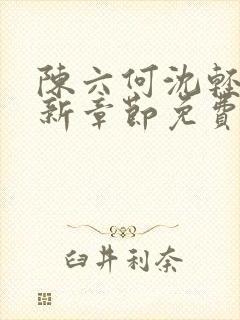 陳六何沈輕
新章節免費
臼井利奈